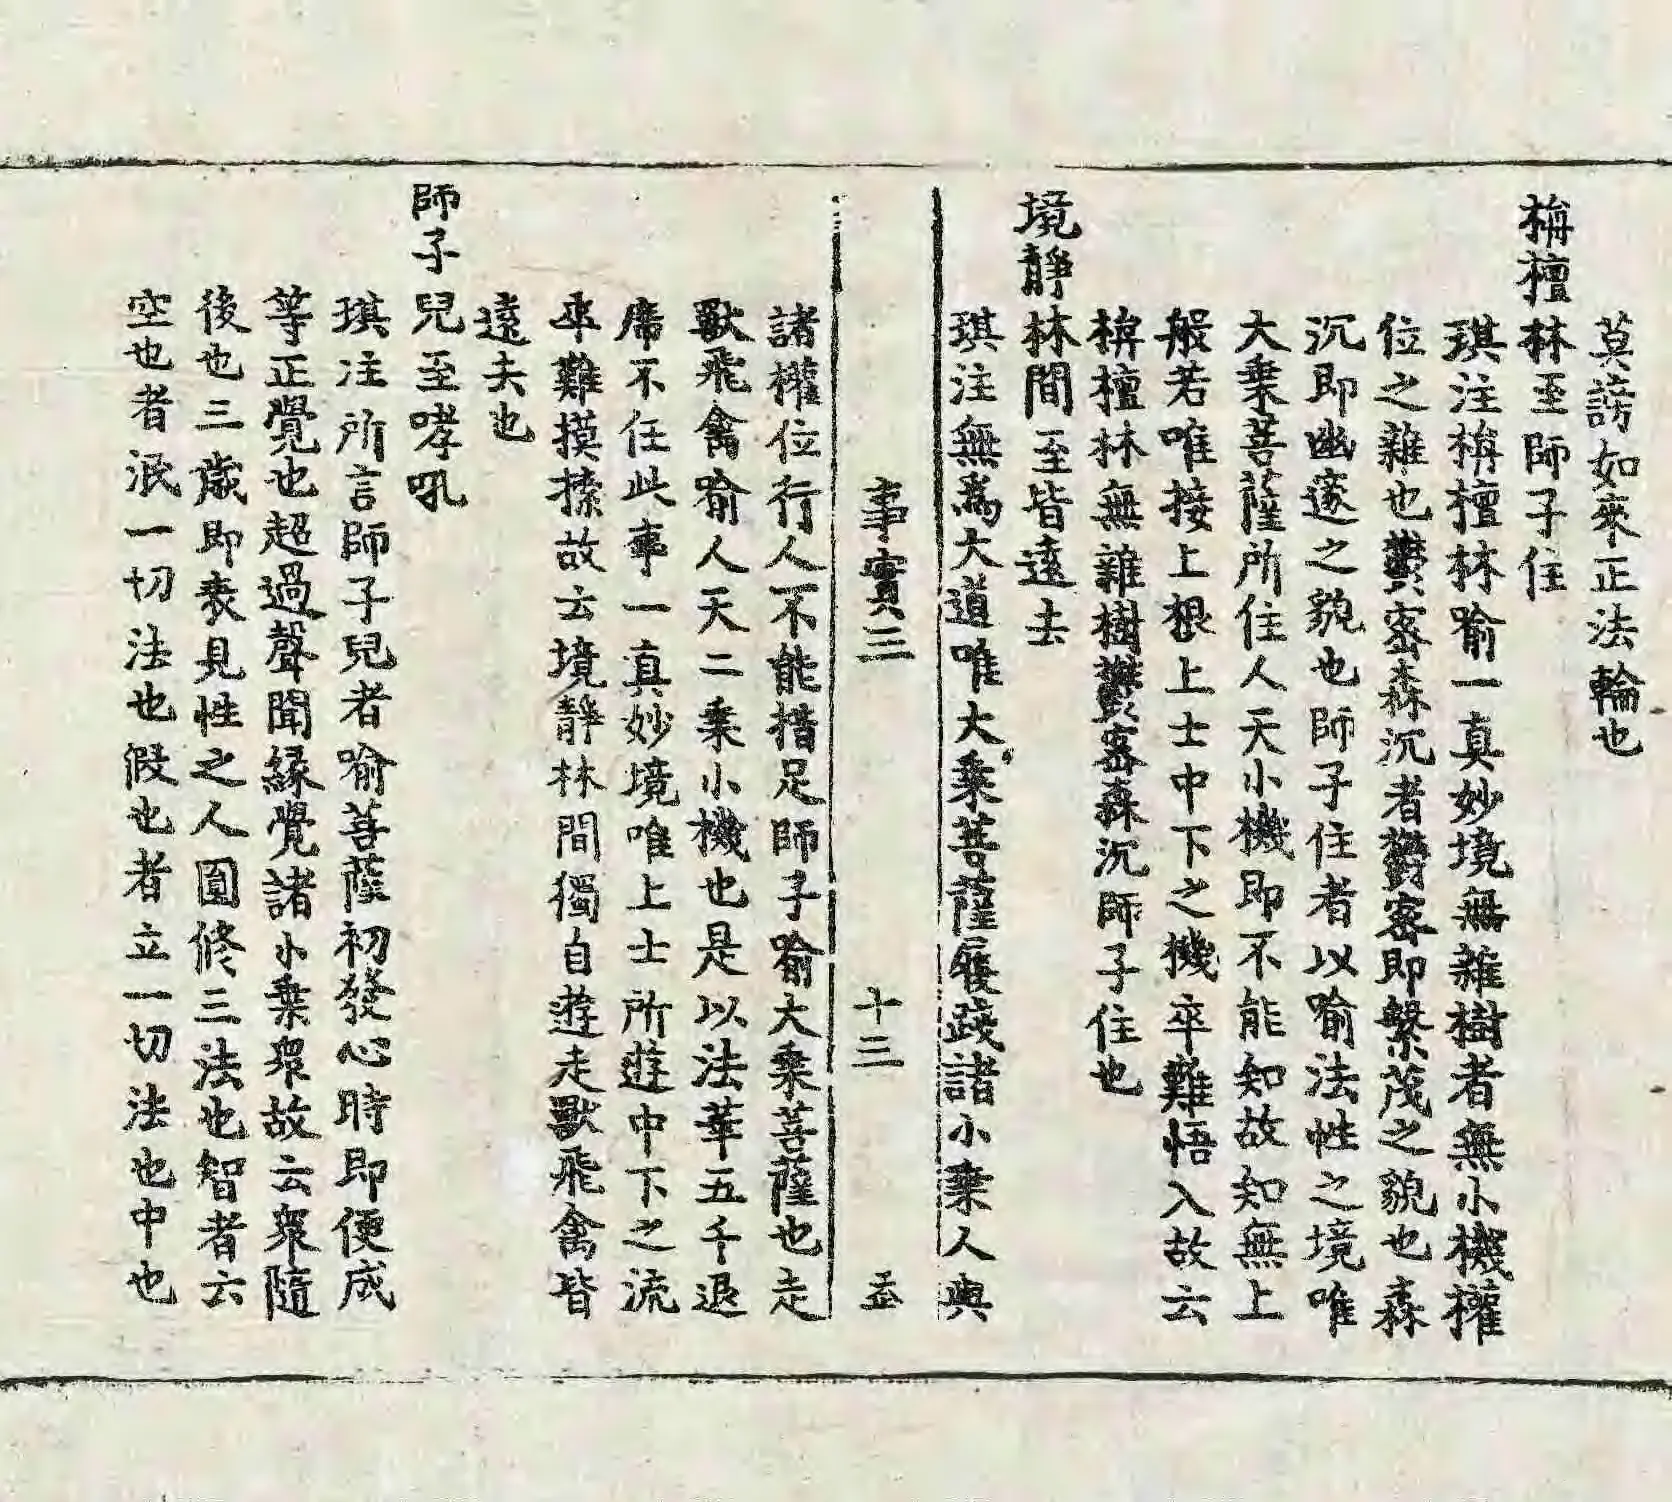 莫謗如來正法輪也
栴檀林至師子住
琪注栴檀林喻一真妙境無雜樹者無小機權
位之雜也欝密森沉者欝密即繁茂之貌也森
沉即幽邃之貌也師子住者以喻法性之境唯
大乗菩薩所住人天小機即不能知故知無上
般若唯接上根上士中下之機卒難悟入故云
栴檀林無雜樹欝密森沉師子住也
境靜林間至皆遠去
琪注無爲大道唯大乗菩薩履踐諸小乗人與
事實三 十三 孟
諸權位行人不能措足師子喻大乗菩薩也走
獸飛禽喻人天二乗小機也是以法華五千退
席不任此事一真妙境唯上士所遊中下之流
卒難摸搽故云境靜林間獨自遊走獸飛禽皆
遠去也
師子兒至哮吼
琪注所言師子兒者喻菩薩初發心時即便成
等正覺也超過聲聞緣覺諸小乗衆故云衆隨
後也三歲即表見性之人圓修三法也智者云
空也者泯一切法也假也者立一切法也中也